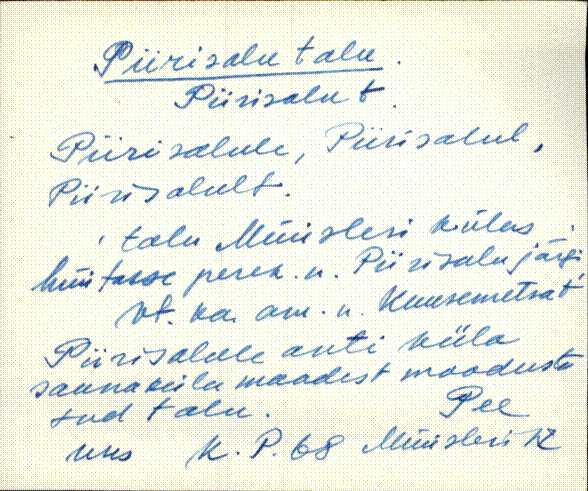 Piirisalu talu.
Piirisalu t.
Piirisalule, Piirisalul,
Piirisalult.
talu Müüsleri külas,
hüütasse perek. n. Piirisalu järgi
vt. ka am. n. Kuusemetsat
Piirisalule anti küla
saunaküla maadest moodusta
tud talu. Pee
uus K. P. 68 Müüsleri k